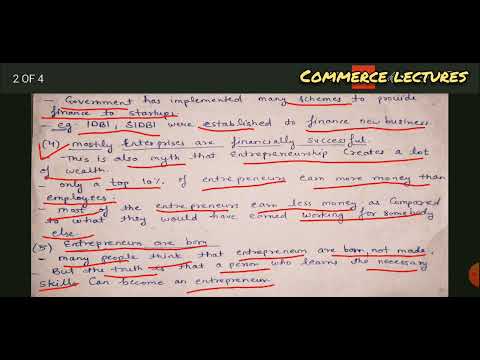 2 OF 4
COMMERCE LECTURES
- Government has implemented many schemes to provide
finance to startups
- eg IDBI, SIDBI were established to finance new business.
(4) mostly Enterprises are financially successful.
- This is also myth that Entrepreneurship creates a lot
of wealth.
- only a top 10% of entrepreneurs earn more money than
employees.
- most of the entrepreneurs earn less money as compared
to what they would have earned working for somebody
else.
(5) Entrepreneurs are born
- many people think that entrepreneurs are born, not made.
But the truth is that a person who learns the necessary
skills can become an entrepreneur